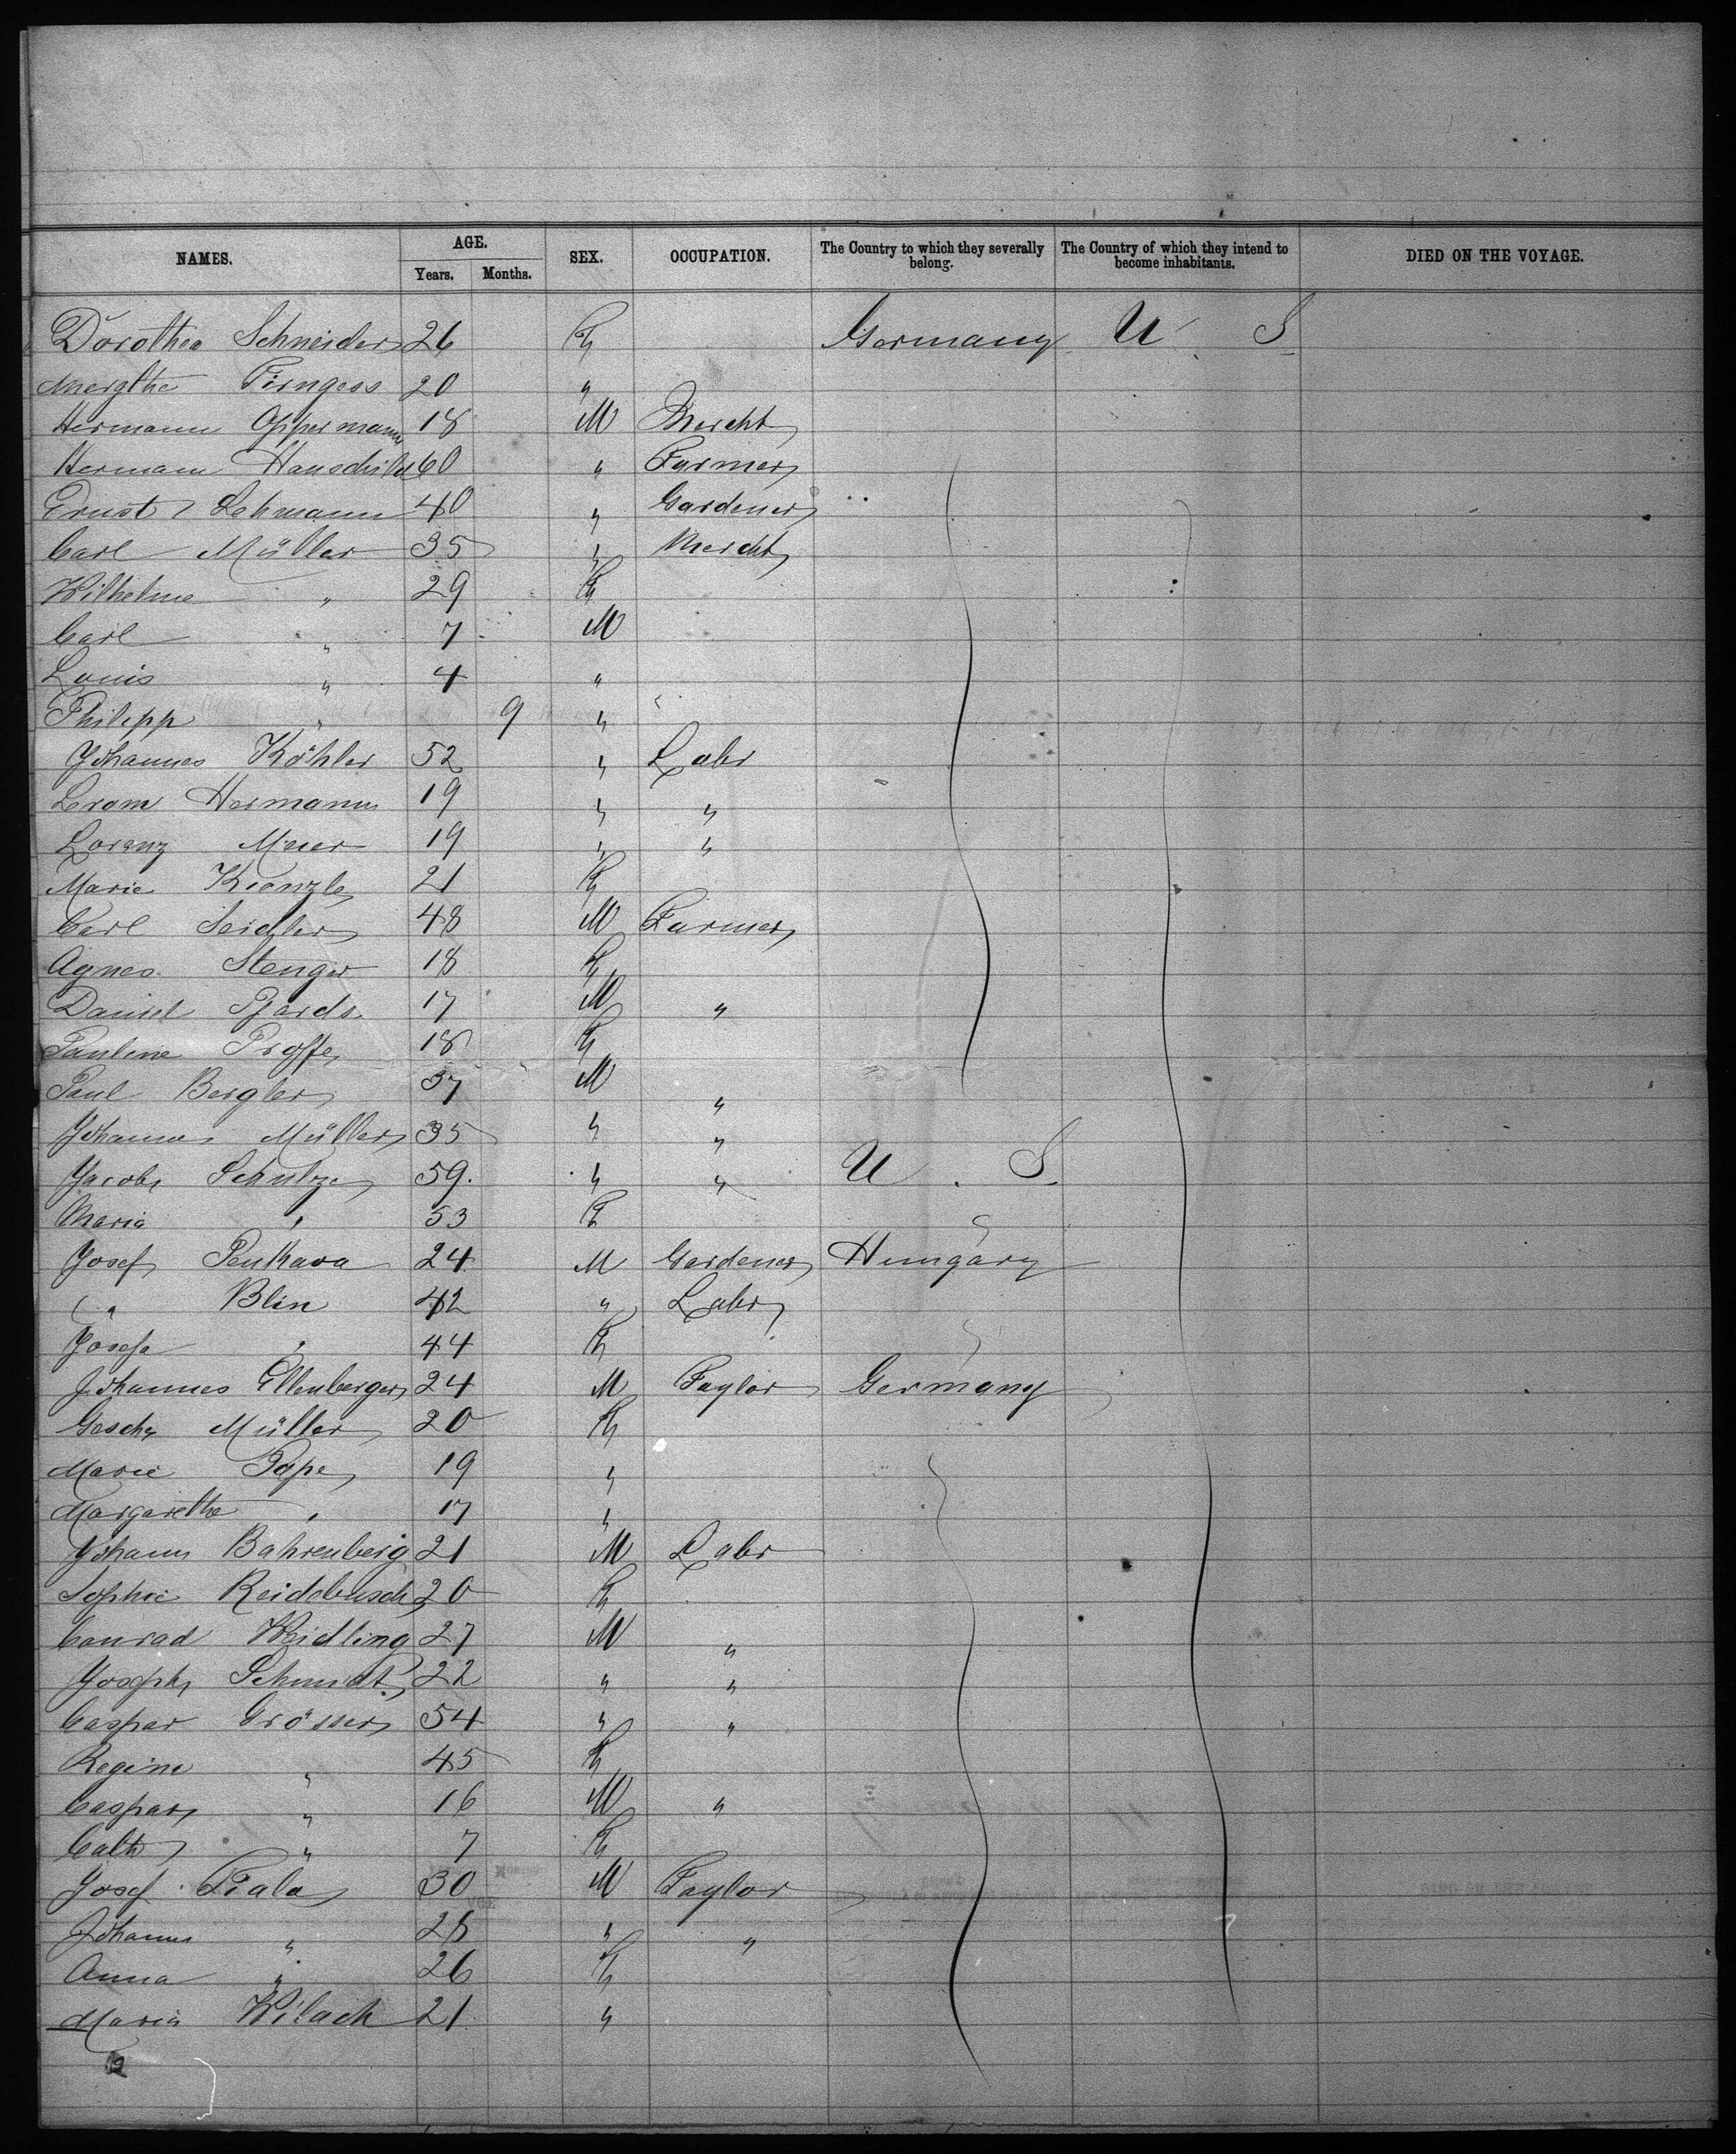 NAMES. AGE. SEX. OCCUPATION. The Country to which they severally belong. The Country of which they intend to become inhabitants. DIED ON THE VOYAGE.
Years. Months.
Dorothea Schneider 26 F Germany U S
20 "
Hermann Oppermann 18 M Mercht
Hermann Hauschild 60 " Farmer
Ernst Lehmann 40 " Gardener
Carl Müller 35 " Mercht
Wilhelme " 29 F
Carl " 7 M
Louis " 4 "
Philipp " 9 "
Johannes Köhler 52 " Labr
Hermann 19 " "
Lorenz Meier 19 " "
Marie Kienzle 21 F
Carl Seidler 48 M Farmer
Agnes Stenger 18 F
Daniel 17 M "
Pauline Proffe 18 F
Paul Bergler 37 M "
Johannes Müller 35 " "
Jacob Schulze 59 " " U. S.
Maria " 53 F
Josef Penkava 24 M Gardener Hungary
" Blin 42 " Labr
Josefa " 44 F
Johannes Ellenberger 24 M Taylor Germany
Gesche Müller 20 F
Marie Pape 19 "
Margarethe " 17 "
Johann Bahrenberg 21 M Labr
Sophie Reidebusch 20 F
Conrad Weidling 27 M "
Joseph Schmidt 22 " "
Caspar Grösser 54 " "
Regine " 45 F
Caspar " 16 M "
Cath " 7 F
Josef Fiala 30 M Taylor
Johann " 28 " "
Anna " 26 F
Maria Wilach 21 "